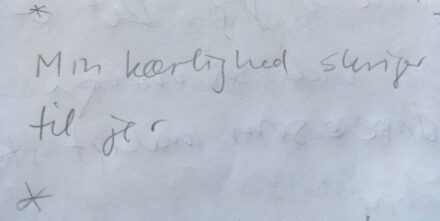 *
Min kærlighed skriger
til jer
*